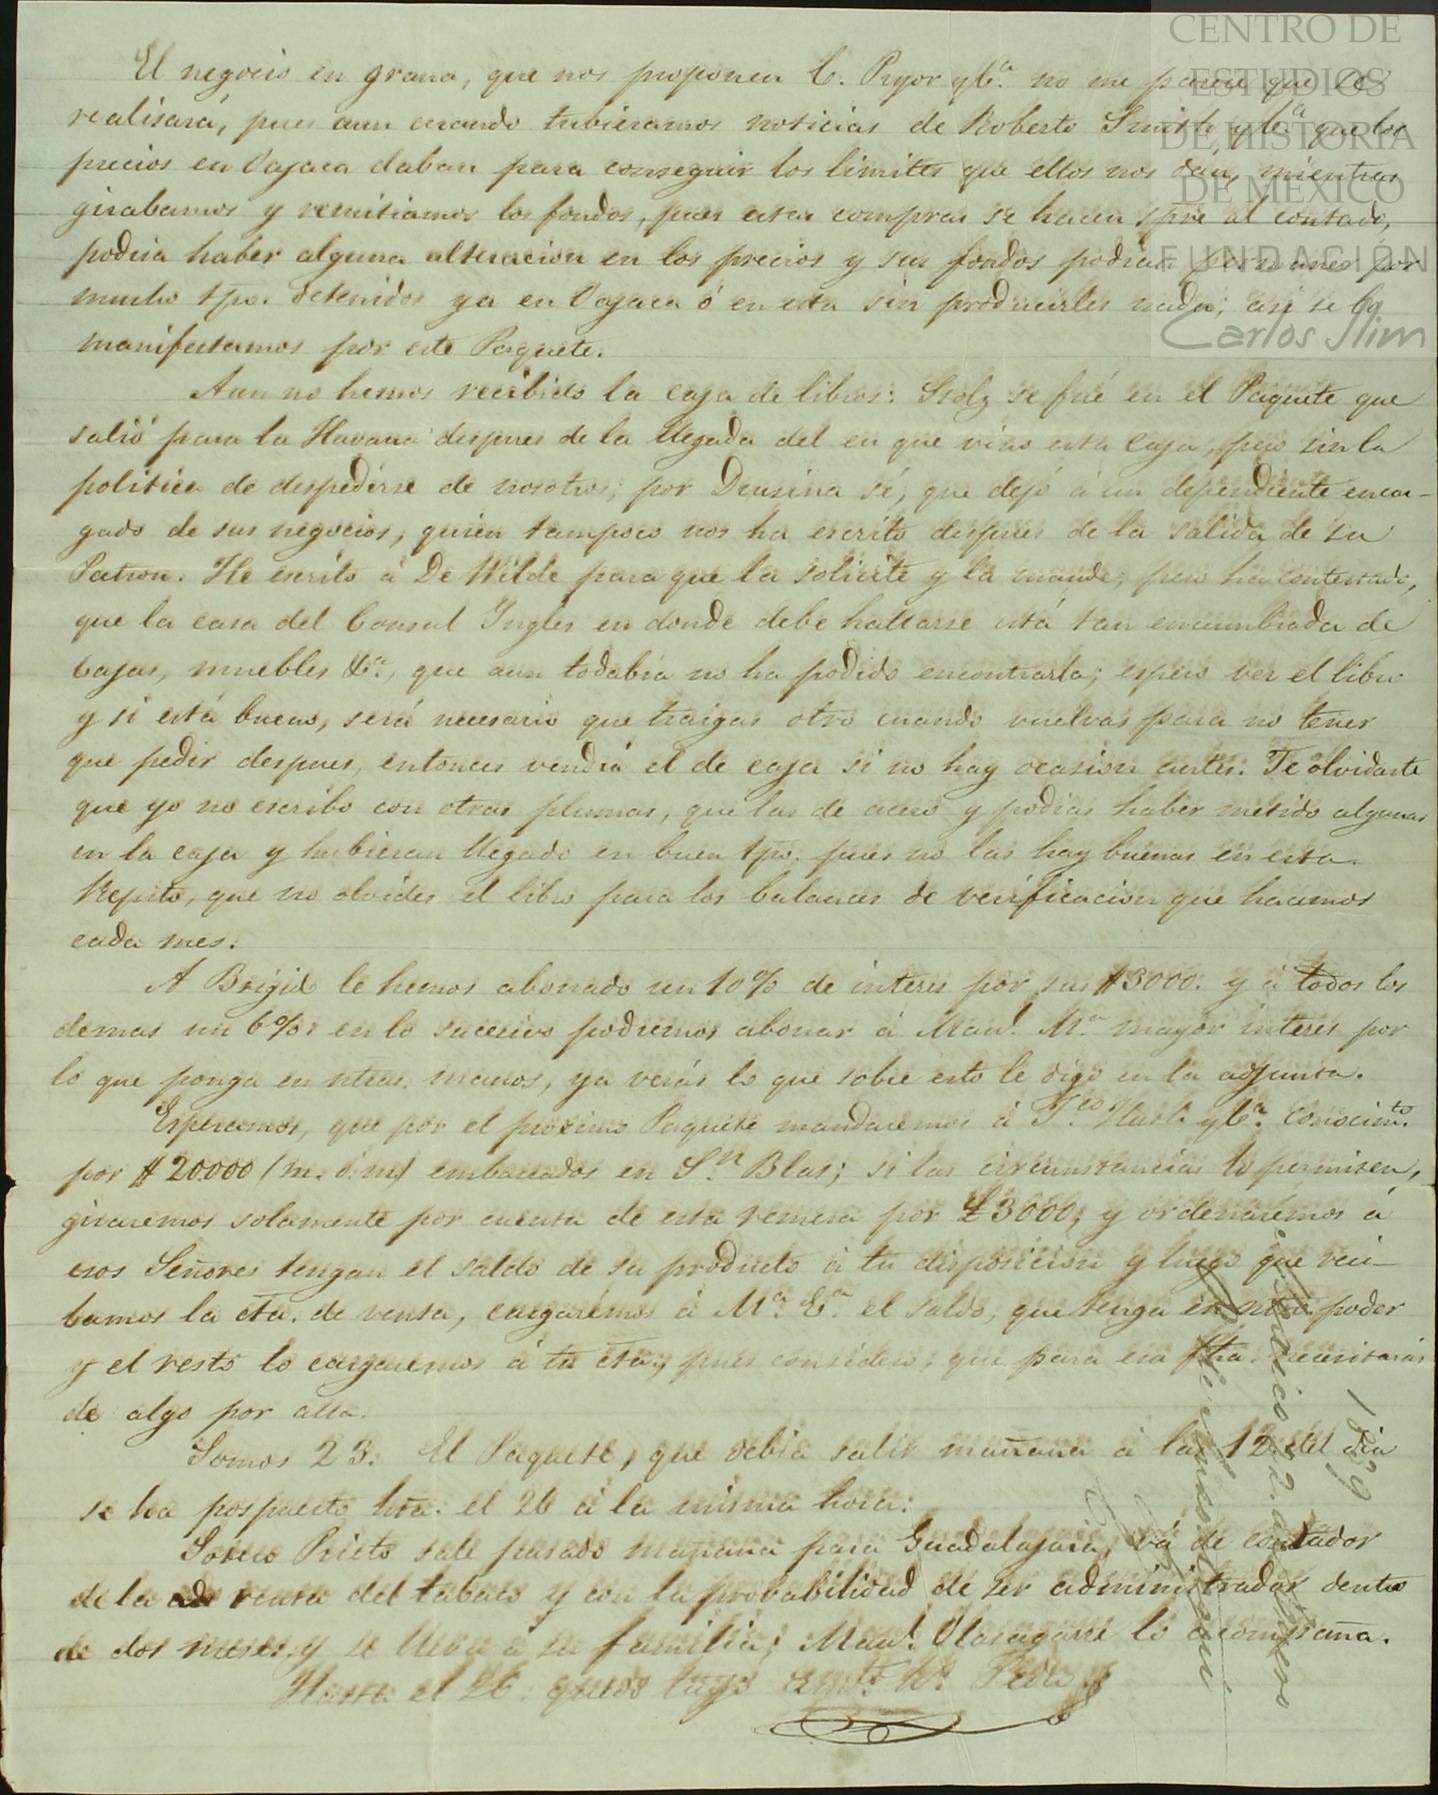 CENTRO DE
ESTUDIOS
DE HISTORIA
DE MÉXICO
FUNDACIÓN
Carlos Slim
El negocio en grana, que nos proponen C. Pryor y Cª. no me parece que se
realisará, pues aun cuando tubieramos noticias de Roberto Smith y Cª. que los
precios en Oajaca daban para conseguir los limites que ellos nos dán, mientras
girabamos y remitiamos los fondos, pues estas compras se hacen spre al contado,
podria haber alguna alteracion en los precios y sus fondos podrian permanecer por
mucho tpo. detenidos ya en Oajaca ó en esta sin producirles nada; asi se lo
manifestamos por este Paquete.
Aun no hemos recibido la caja de libros: Stolz se fué en el Paquete que
salió para la Havana despues de la llegada del en que vino esta caja, pero sin la
politica de despedirse de nosotros; por Drusina sé, que dejó á un dependiente encar-
gado de sus negocios, quien tampoco nos ha escrito despues de la salida de su
Patron. He escrito á De Wilde para que la solicite y la mande; pero ha contestado,
que la casa del Consul Ingles en donde debe hallarse está tan encumbrada de
cajas, muebles &ª., que aun todabia no ha podido encontrarla; espero ver el libro
y si está bueno, será necesario que traigas otro cuando vuelvas para no tener
que pedir despues, entonces vendrá el de caja si no hay ocasion antes. Te olvidaste
que yo no escribo con otras plumas, que las de acero y podias haber metido algunas
en la caja y hubieran llegado en buen tpo. pues no las hay buenas en esta.
Repito, que no olvides el libro para los balances de verificacion que hacemos
cada mes.
A Brigido le hemos abonado un 10% de interes por sus $3000. y á todos los
demas un 6%: en lo sucesivo podremos abonar á Manl. Mª mayor interes por
lo que ponga en ntras. manos, ya verás lo que sobre esto le digo en la adjunta.
Esperamos, que por el proximo Paquete mandaremos á Fco. Huth y Cª. conocimto.
por $20.000 (m. ó m) embarcados en Sn. Blas; si las circunstancias lo permiten,
giraremos solamente por cuenta de esta remesa por £3000; y ordenarémos á
esos Señores tengan el saldo de su producto á tu disposicion y luego que reci-
bamos la cta. de venta, cargarémos á Mª. Eª. el saldo, que tenga en ntro. poder
y el resto lo cargaremos á tu cta; pues considero, que para esa fha. necesitarás
de algo por alla.
Somos 23. El Paquete, que debia salir mañana á las 12 del dia
se ha pospuesto hta. el 26 á la misma hora.
Sotero Prieto sale pasado mañana para Guadalajara, vá de contador
de la renta del tabaco y con la probabilidad de ser administrador dentro
de dos meses, y se lleva á su familia; Manl. Olasagarre lo acompaña.
Hasta el 26. quedo tuyo Pedro
1839